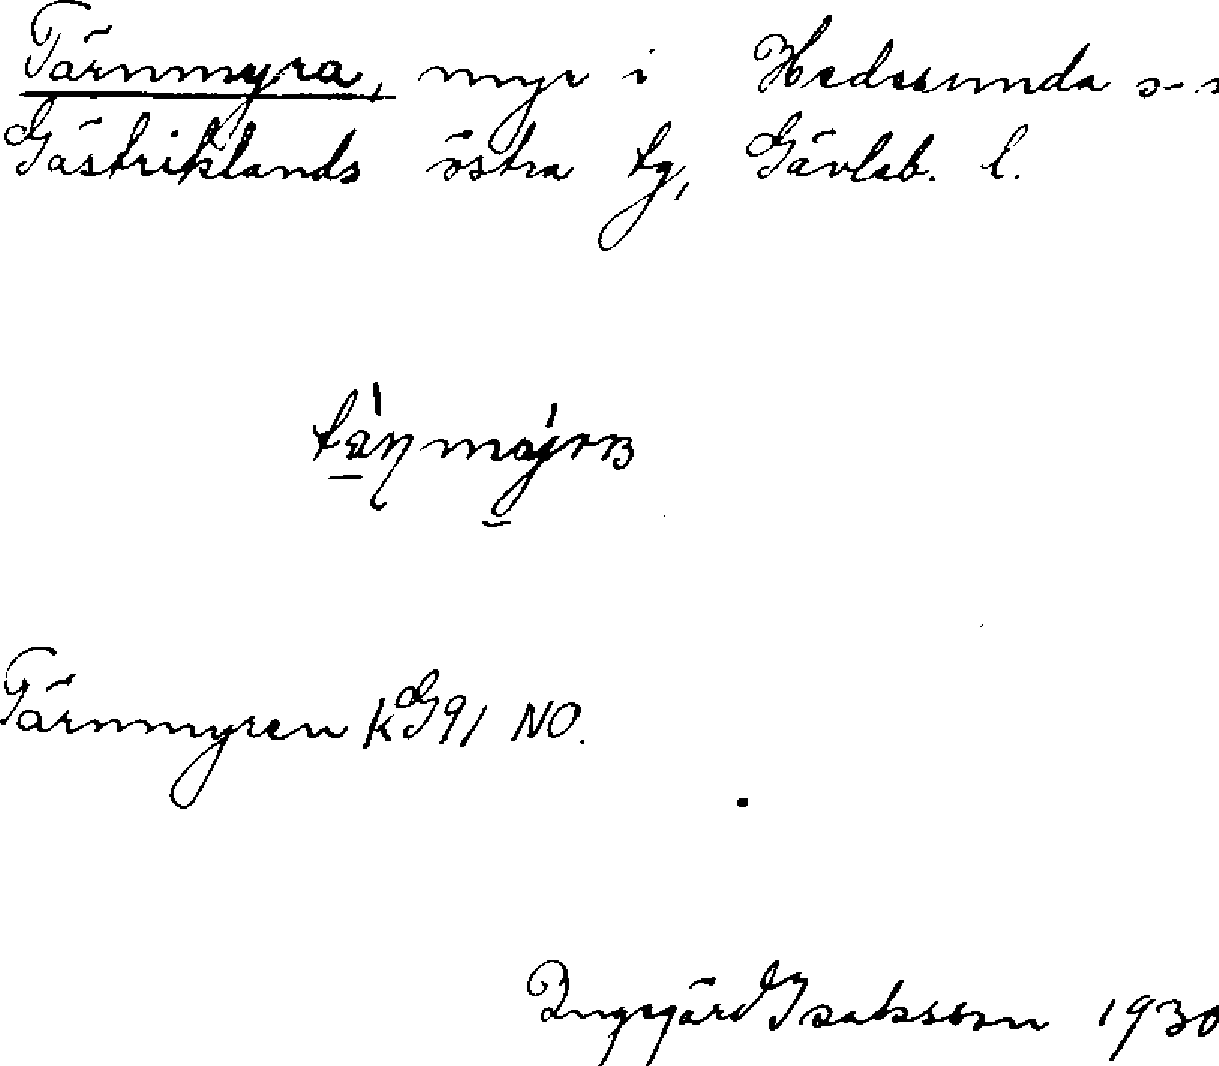 Tärnmyra, myr i Hedesunda s-n
Gästriklands östra tg, Gävleb. l.
Tärnmyren kG91 NO.
Ingegärd Isaksson 1930